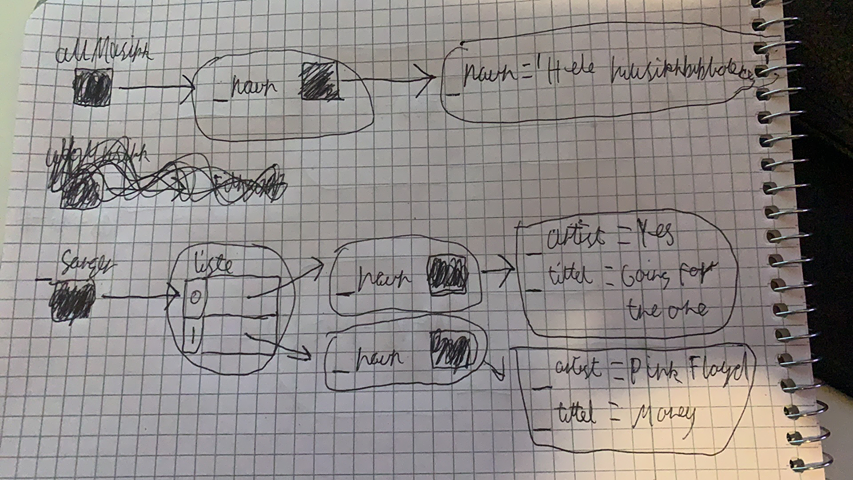 allMusikk
_navn
_navn = 'Hele musikkbiblioteket
_sanger
liste
0
1
_navn
_artist = Yes
_tittel = Going for
the one
_navn
_artist = Pink Floyd
_tittel = Money